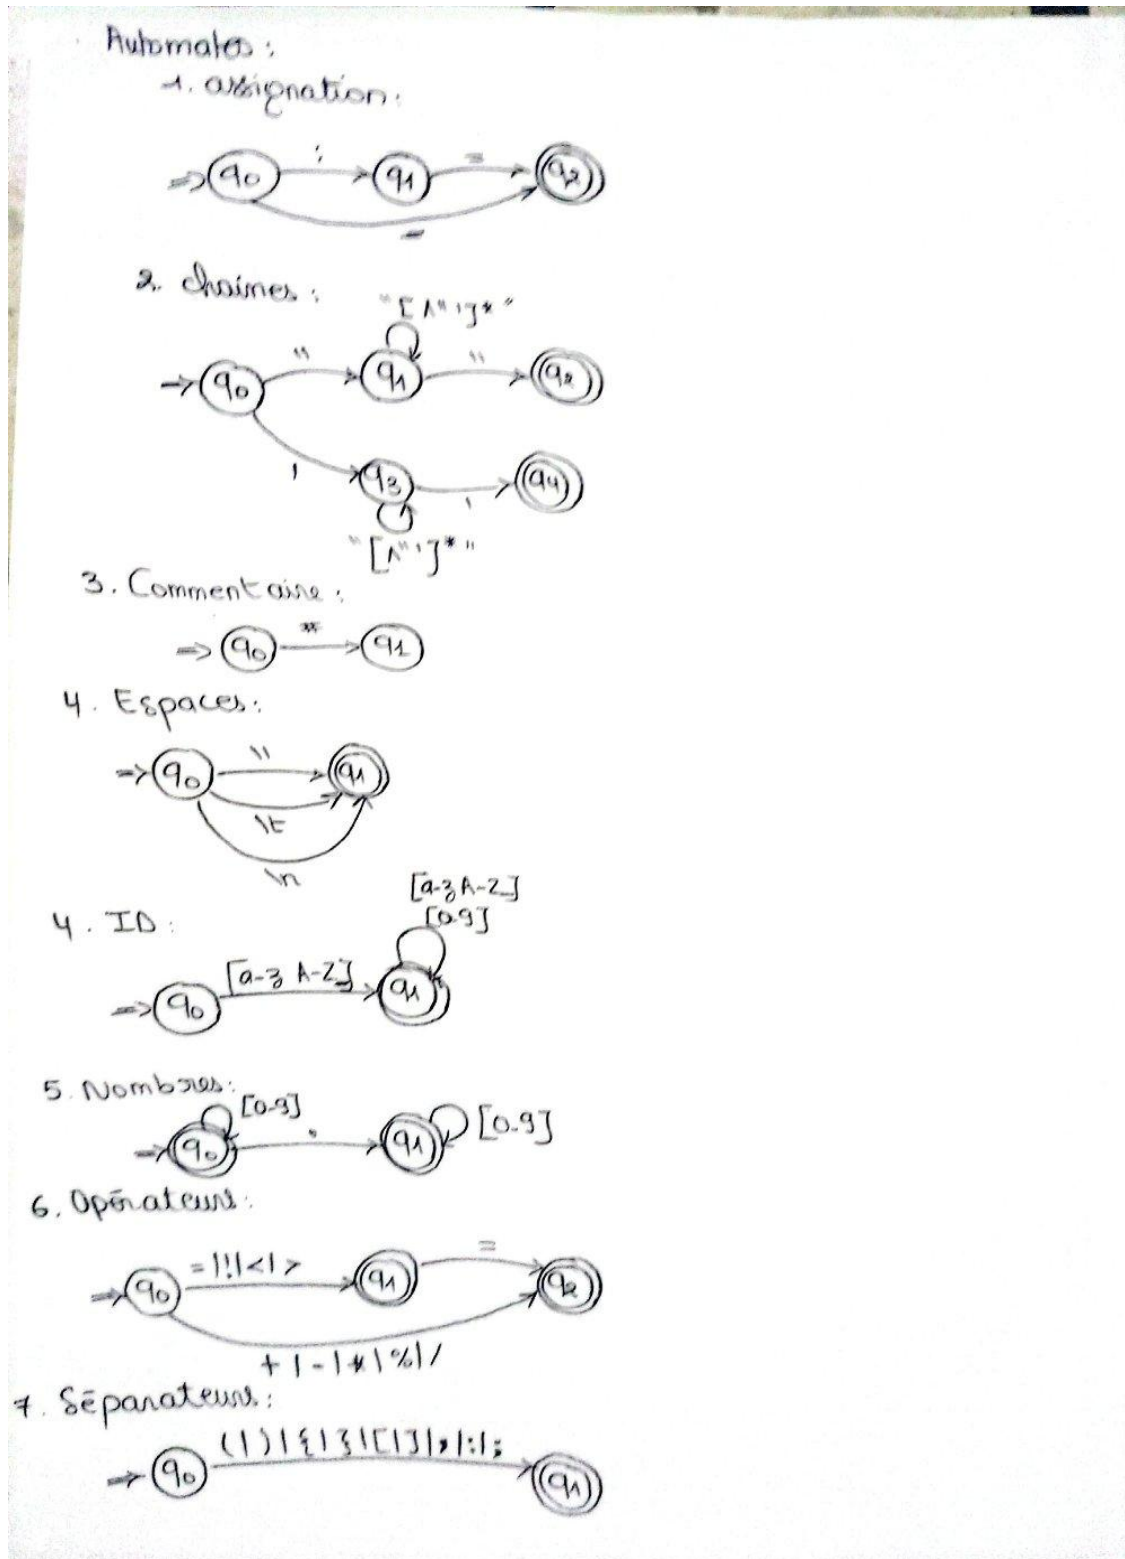 Automates :
1. assignation :
: =
q0 q1 q2
=
2. chaines :
"[^"']*"
" "
q0 q1 q2
' q3 ' q4
"[^"']*"
3. Commentaire :
q0 * q1
4. Espaces :
" "
q0 q1
\t
\n
[a-z A-Z]
4. ID : [0-9]
[a-z A-Z]
q0 q1
5. Nombres :
[0-9] [0-9]
q0 . q1
6. Opérateurs :
=|!|<|> =
q0 q1 q2
+|-|*|%|/
7. Séparateurs :
(|)|{|}|[|]|,|:|;
q0 q1